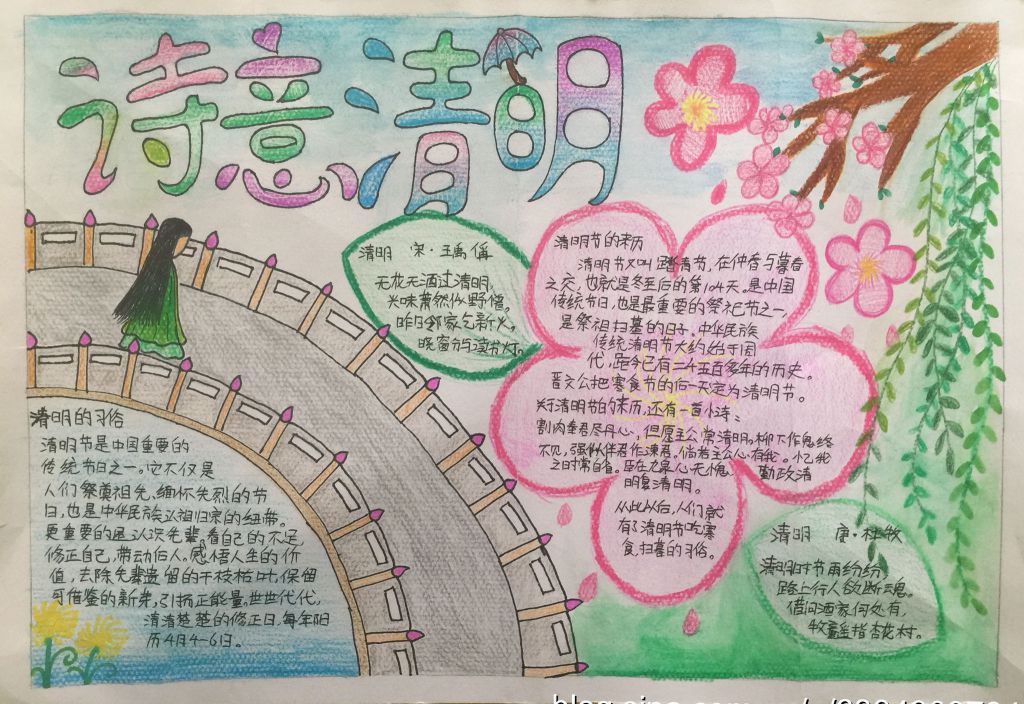 诗意清明
清明 宋·王禹偁
无花无酒过清明,
兴味萧然似野僧。
昨日邻家乞新火,
晓窗分与读书灯。
清明节的来历
清明节又叫踏青节,在仲春与暮春
之交,也就是冬至后的第104天。是中国
传统节日,也是最重要的祭祀节之一,
是祭祖扫墓的日子。中华民族
传统清明节大约始于周
代,距今已有二千五百多年的历史。
晋文公把寒食节的后一天定为清明节。
关于清明节的来历,还有一首小诗:
割肉奉君尽丹心,但愿主公常清明。柳下作鬼终
不见,强似伴君作谏臣。倘若主公心有我,忆我
之时常自省。臣在九泉心无愧,勤政清
明复清明。
从此以后,人们就
有了清明节吃寒
食,扫墓的习俗。
清明的习俗
清明节是中国重要的
传统节日之一。它不仅是
人们祭奠祖先、缅怀先烈的节
日,也是中华民族认祖归宗的纽带。
更重要的是认次先辈,看自己的不足,
修正自己,带动后人。感悟人生的价
值,去除先辈遗留的干枝枯叶,保留
可借鉴的新芽,引扬正能量。世世代代,
清清楚楚的修正日,每年阳
历4月4-6日。
清明 唐·杜牧
清明时节雨纷纷,
路上行人欲断魂。
借问酒家何处有,
牧童遥指杏花村。